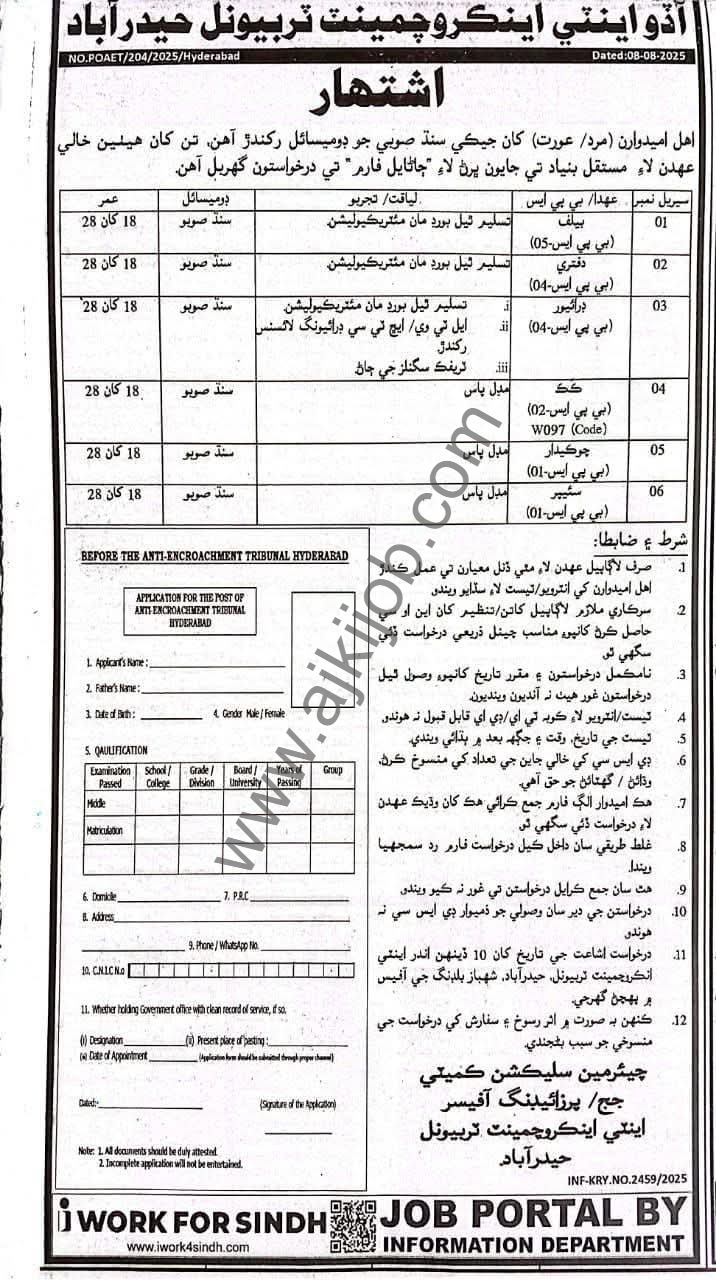 آڏو اينٽي اينڪروچمينٽ ٽربيونل حيدرآباد
NO.POAET/204/2025/Hyderabad
Dated:08-08-2025
اشتهار
اهل اميدوارن (مرد/ عورت) کان جيڪي سنڌ صوبي جو ڊوميسائل رکندڙ آهن، تن کان هيٺين خالي
عهدن لاءِ مستقل بنياد تي جايون ڀرڻ لاءِ "ڄاڻايل فارم" تي درخواستون گهربل آهن.
سيريل نمبر عهدا/ بي پي ايس لياقت/ تجربو ڊوميسائل عمر
01 بيلف تسليم ٿيل بورڊ مان مئٽريڪيوليشن. سنڌ صوبو 18 کان 28
(بي پي ايس-05)
02 دفتري تسليم ٿيل بورڊ مان مئٽريڪيوليشن. سنڌ صوبو 18 کان 28
(بي پي ايس-04)
03 ڊرائيور i. تسليم ٿيل بورڊ مان مئٽريڪيوليشن. سنڌ صوبو 18 کان 28
(بي پي ايس-04) ii. ايل ٽي وي/ ايڇ ٽي سي ڊرائيونگ لائسنس
رکندڙ.
iii. ٽريفڪ سگنلز جي ڄاڻ.
04 ڪُڪ مڊل پاس سنڌ صوبو 18 کان 28
(بي پي ايس-02)
W097 (Code)
05 چوڪيدار مڊل پاس سنڌ صوبو 18 کان 28
(بي پي ايس-01)
06 سئيپر مڊل پاس سنڌ صوبو 18 کان 28
(بي پي ايس-01)
شرط ۽ ضابطا:
1. صرف لاڳاپيل عهدن لاءِ مٿي ڏنل معيارن تي عمل ڪندڙ
اهل اميدوارن کي انٽرويو/ٽيسٽ لاءِ سڏايو ويندو.
2. سرڪاري ملازم لاڳاپيل کاتن/تنظيم کان اين او سي
حاصل ڪرڻ کانپوءِ مناسب چينل ذريعي درخواست ڏئي
سگهي ٿو.
3. نامڪمل درخواستون ۽ مقرر تاريخ کانپوءِ وصول ٿيل
درخواستون غور هيٺ نه آنديون وينديون.
4. ٽيسٽ/انٽرويو لاءِ ڪوبه ٽي اي/ڊي اي قابل قبول نه هوندو.
5. ٽيسٽ جي تاريخ، وقت ۽ جڳهه بعد ۾ ٻڌائي ويندي.
6. ڊي ايس سي کي خالي جاين جي تعداد کي منسوخ ڪرڻ،
وڌائڻ / گهٽائڻ جو حق آهي.
7. هڪ اميدوار الڳ فارم جمع ڪرائي هڪ کان وڌيڪ عهدن
لاءِ درخواست ڏئي سگهي ٿو.
8. غلط طريقي سان داخل ڪيل درخواست فارم رد سمجهيا
ويندا.
9. هٿ سان جمع ڪرايل درخواستن تي غور نه ڪيو ويندو.
10. درخواستن جي دير سان وصولي جو ذميوار ڊي ايس سي نه
هوندو.
11. درخواست اشاعت جي تاريخ کان 10 ڏينهن اندر اينٽي
انڪروچمينٽ ٽربيونل، حيدرآباد، شهباز بلڊنگ جي آفيس
۾ پهچڻ گهرجي.
12. ڪنهن به صورت ۾ اثر رسوخ ۽ سفارش کي درخواست جي
منسوخي جو سبب بڻجندي.
چيئرمين سليڪشن ڪميٽي
جج/ پرزائيڊنگ آفيسر
اينٽي اينڪروچمينٽ ٽربيونل
حيدرآباد
INF-KRY.NO.2459/2025
BEFORE THE ANTI-ENCROACHMENT TRIBUNAL HYDERABAD
APPLICATION FOR THE POST OF
ANTI-ENCROACHMENT TRIBUNAL
HYDERABAD
1. Applicant's Name :
2. Father's Name :
3. Date of Birth : 4. Gender Male / Female
5. QAULIFICATION
Examination Passed School / College Grade / Division Board / University Years of Passing Group
Middle
Matriculation
6. Domicile 7. P.R.C
8. Address
9. Phone / WhatsApp No.
10. C.N.I.C N.o
11. Whether holding Government office with clean record of service, if so.
(i) Designation (ii) Present place of pasting :
(a) Date of Appointment (Application form should be submitted through proper channel)
Dated:- (Signature of the Application)
Note: 1. All documents should be duly attested.
2. Incomplete application will not be entertained.
www.ajkijob.com
i WORK FOR SINDH
www.iwork4sindh.com
JOB PORTAL BY
INFORMATION DEPARTMENT